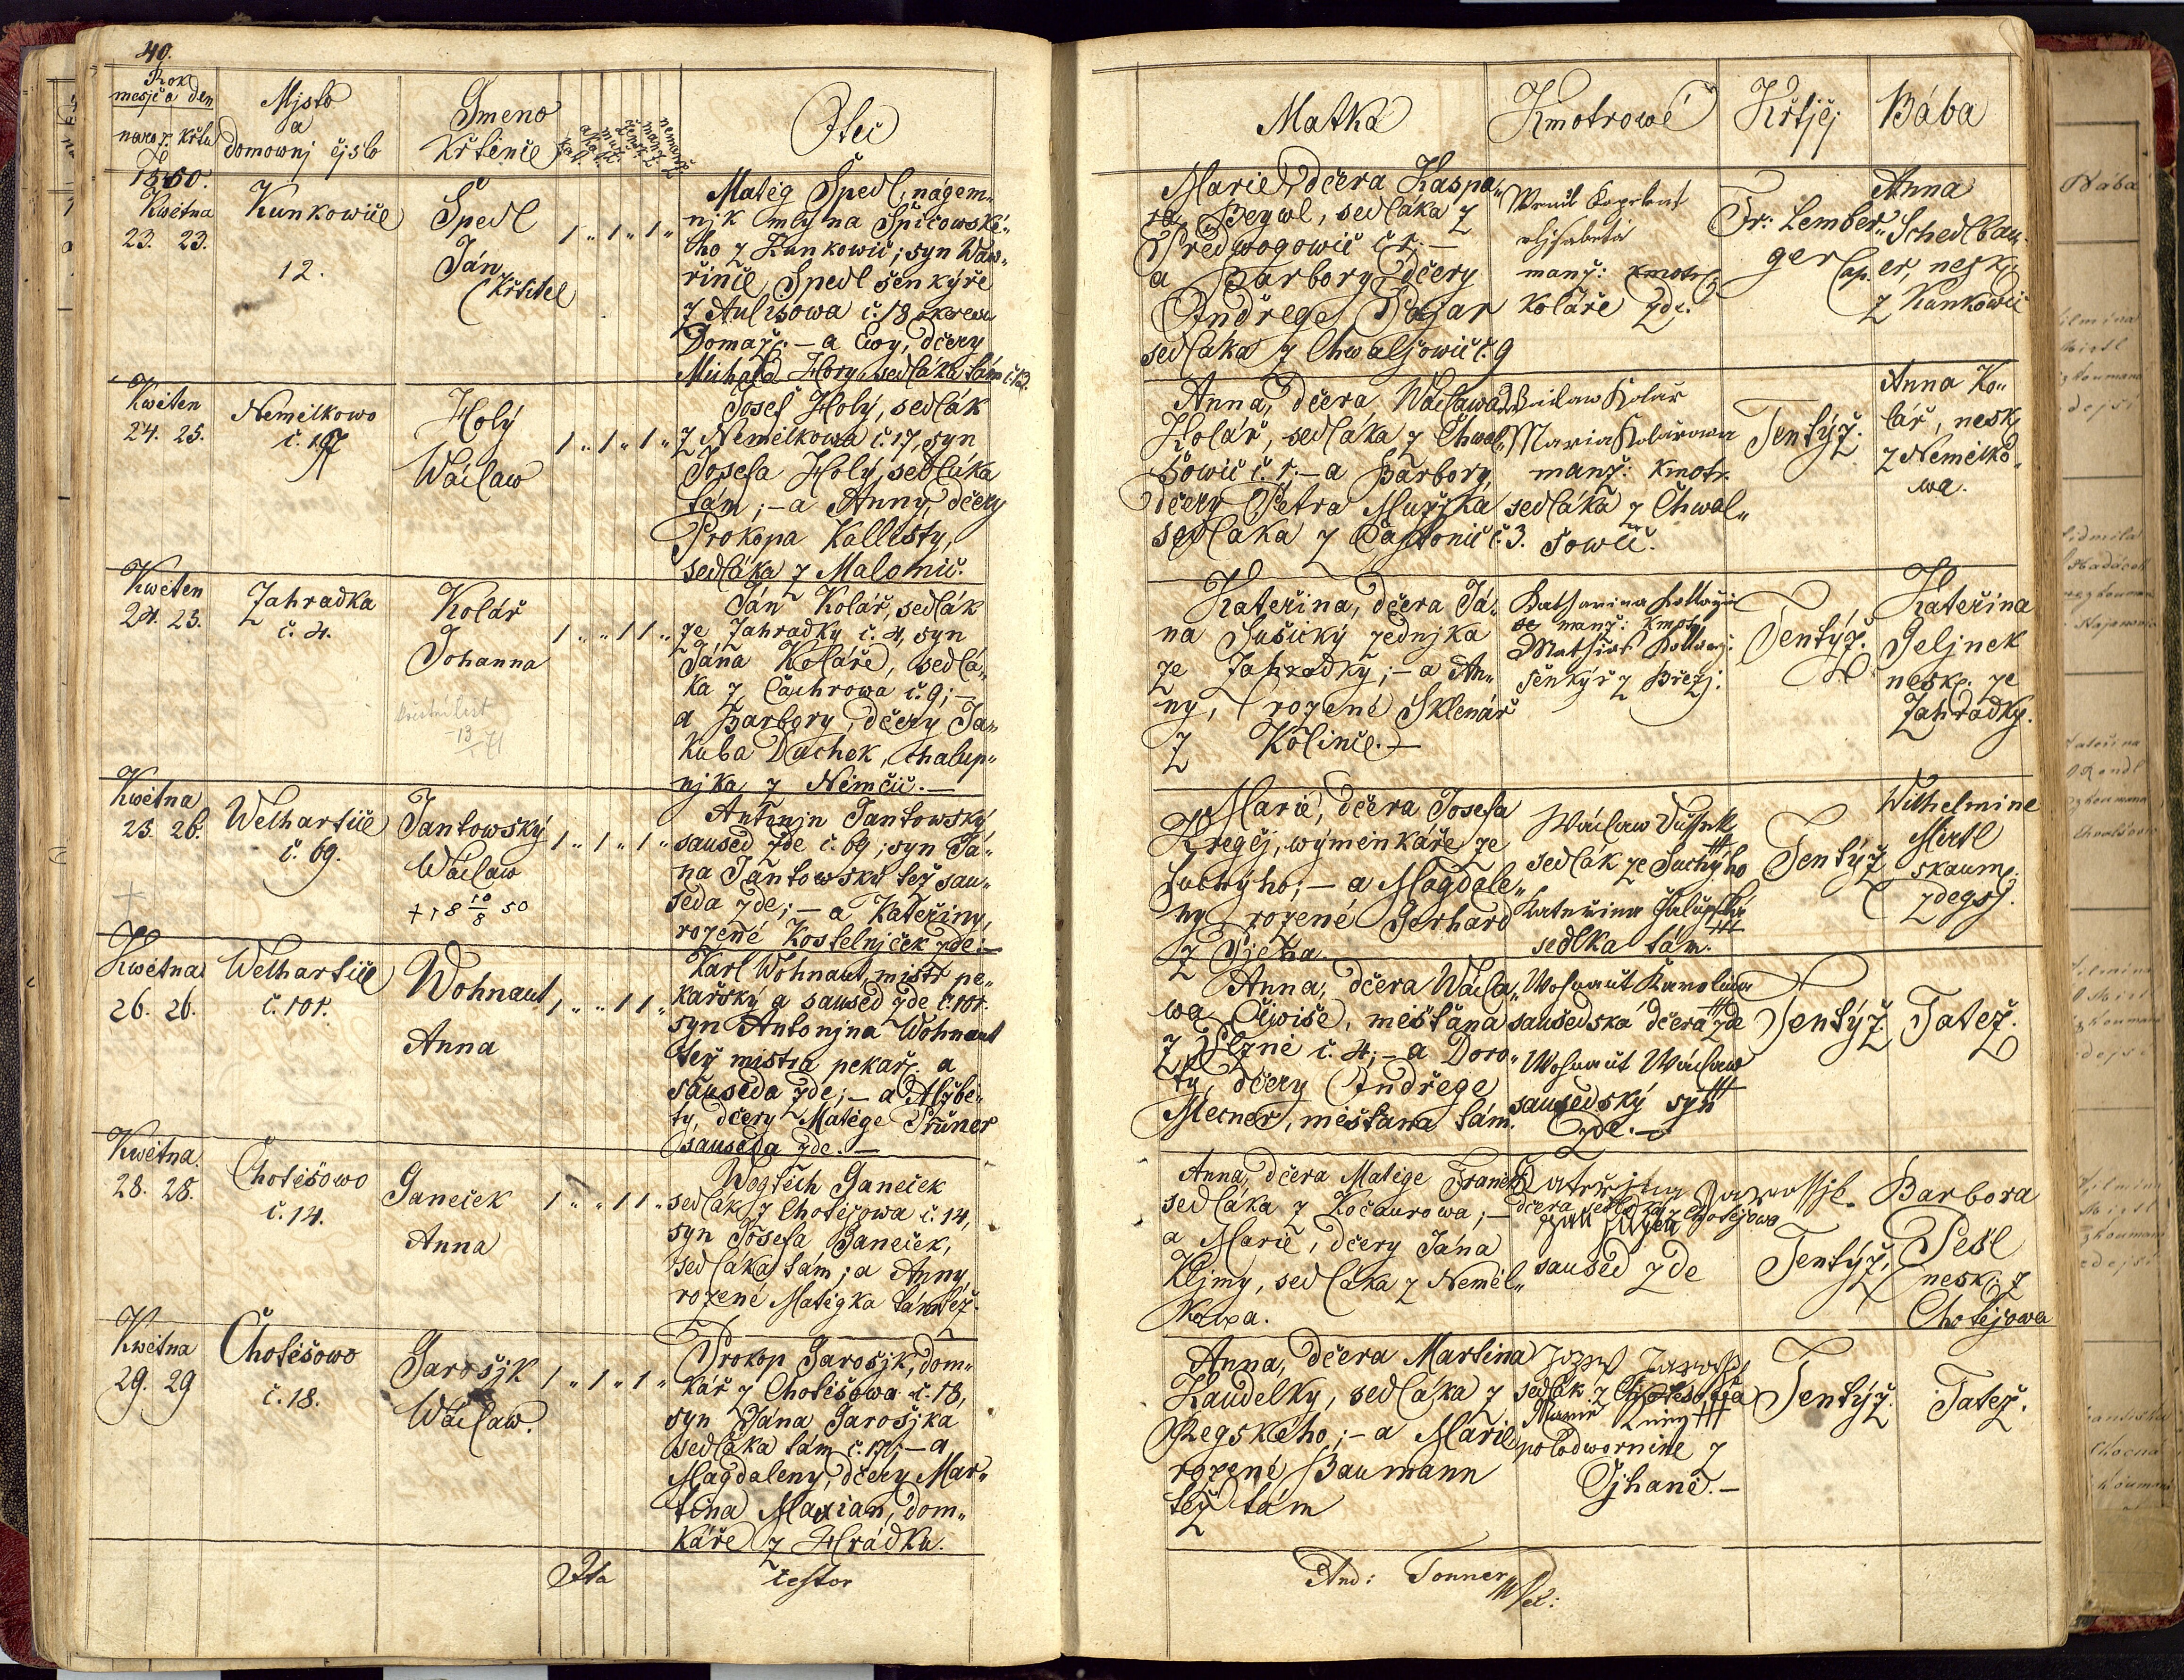 40.
Rok
mesjc a den
naroz. křtu
Mjsto
a
domownj čjslo
Gmeno
Křtěnce
Otec
Matka
Kmotrowé
Křtjcj
Bába
1850.
Kwětna
23. 23.
Kunkowice
12.
Špedl
Ján
Křtitel
1 „ 1 „ 1 „
Matěg Špedl, nágem„
njk mlýna Spičowské„
ho z Kunkowic; syn Waw„
řince Špedl šenkýře
z Aulišowa č. 18
Domažc. — a Ewy, dcery
Michala Hory, sedláka tám č. 13.
Marie, dcera Kaspa„
ra Beywl, sedláka z
Předwogowic č. 1. —
a Barbory dcery
Ondřege
sedláka z Chwalšowic č. 9
manž: kmotr
koláře zde.
Fr: Lember„
ger Cap.
Anna
Schedlbau„
er, nesk.
z Kunkowic
Kwěten
24. 25.
Nemělkowo
č. 17
Holý
Wáclaw
1 „ 1 „ 1 „
Josef Holý, sedlák
z Nemělkowa č. 17, syn
Josefa Holý, sedláka
tám; — a Anny, dcery
Prokopa Kallisty,
sedláka z Malonic.
Anna, dcera Wáclawa
Kolář, sedláka z Chwal„
šowic č. 1. — a Barbory,
dcery Petra Mužjka
sedláka z Častonic č. 3.
Waclaw Kolár
Maria Kolárowa
manž: kmotr.
sedláka z Chwal„
šowic.
Tentýž.
Anna Ko„
lář, nesk.
z Nemělko„
wa.
Kwěten
24. 25.
Zahradka
č. 4.
Kolář
Johanna
křestní list
13
71
1 „ „ 1 1 „
Ján Kolář, sedlák
ze Zahradky č. 4, syn
Jána Koláře, sedlá„
ka z Čachrowa č. 9; —
a Barbory, dcery Ja„
kuba Duchek, chalup„
njka z Němčic. —
Kateřina, dcera Já„
na Sušický zednjka
ze Zahradky; — a An„
ny, rozené Sklenář
z Kolince. —
Katharina
manž: kmotr.
Mathias
šenkýř z Březj.
Tentýž.
Kateřina
Geljnek
nesk. ze
Zahrádky.
Kwětna
25. 26.
Welhartice
č. 69.
Jantowský
Wáclaw
+ 18 10/8 50
1 „ 1 „ 1 „
Antonjn Jantowský
saused zde č. 69; syn Já„
na Jantowský též sau„
seda zde; — a Kateřiny,
rozené Kostelnjček zde. —
Marie, dcera Josefa
Kregčj, wýměnkáře ze
Suchýho; — a Magdale„
ny rozené Gerhard
z
Wáclaw Dussek
sedlák ze Suchýho
Kateřina
sedlka tám.
Tentýž
Wilhelmine
Mirtl
skaum.
zdegšj.
Kwětna
26. 26.
Welhartice
č. 101.
Wohnaut
Anna
1 „ „ 1 1 „
Karl Wohnaut, mistr pe„
kařský a saused zde č. 101.
syn Antonjna Wohnaut
též mistra pekař. a
sauseda zde; — a Alžbě„
ty, dcery Matěge Průner
sauseda zde. —
Anna, dcera Wácla„
wa, měštana
z Plzně č. 4; — a Doro„
ty, dcery Ondřege
Mecner, měštana tám.
Wohnaut Karolina
sausedská dcera zde
Wohnaut Wáclaw
sausedský syn
zde. —
Tentýž
Tatéž.
Kwětna
28. 28.
Chotěšowo
č. 14.
Ganeček
Anna
1 „ „ 1 1 „
Wogtěch Ganeček
sedlák z Chotěšowa č. 14,
syn Josefa Ganeček,
sedláka tám; a Anny,
rozené Matěgka tamtéž.
Anna, dcera Matěge Franěk
sedláka z Kočaurowa; —
a Marie, dcery Jána
Kljmy, sedláka z Neměl„
kowa.
dcera sedláka z Chotěšowa
saused zde
Tentýž,
Barbora
Pešl
nesk. z
Chotěšowa
Kwětna
29. 29
Chotěšowo
č. 18.
Garošjk
Wáclaw.
1 „ 1 „ 1 „
Prokop Garošjk, dom„
kář z Chotěšowa č. 18,
syn Jána Garošjka
sedláka tám č. 17; — a
Magdaleny, dcery Mar„
tina Marian, dom„
káře z Hrádku.
Anna, dcera Martina
Kaudelky, sedláka z
Regského; — a Marie
rozené Baumann
též tám
sedlák z Chotěšowa
Marie
polodwornice z
Gjhané. —
Tentýž.
Tatéž.
Ita
testor
And: Tonner